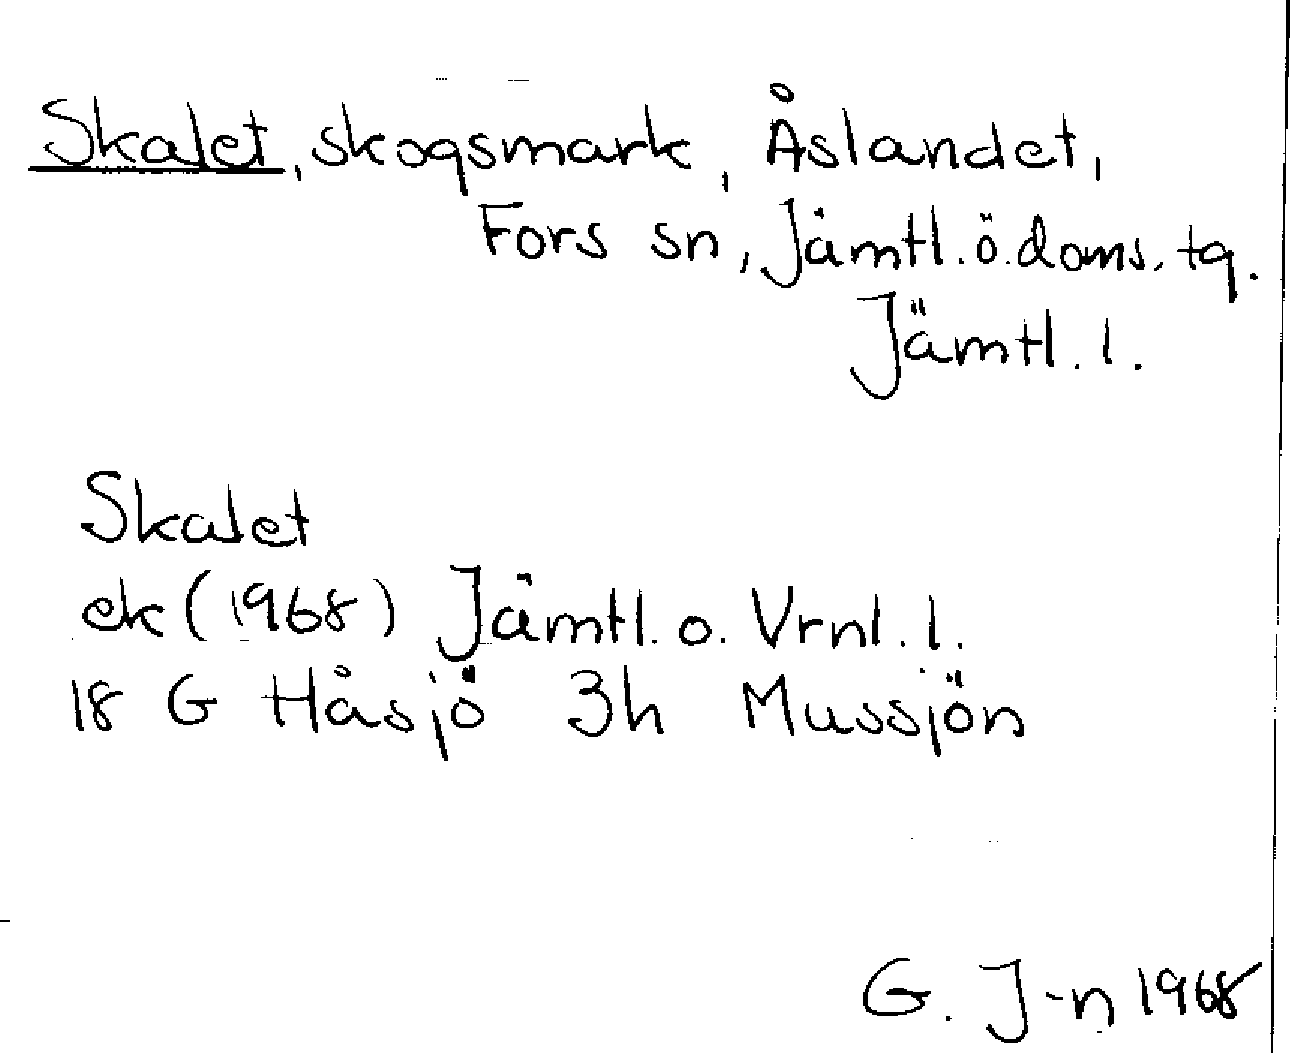 Skalet, skogsmark, Åslandet,
Fors sn, Jämtl. ö. doms. tg.
Jämtl. l.
Skalet
ek (1968) Jämtl. o. Vrnl. l.
18 G Håsjö 3h Mussjön
G. J-n 1968